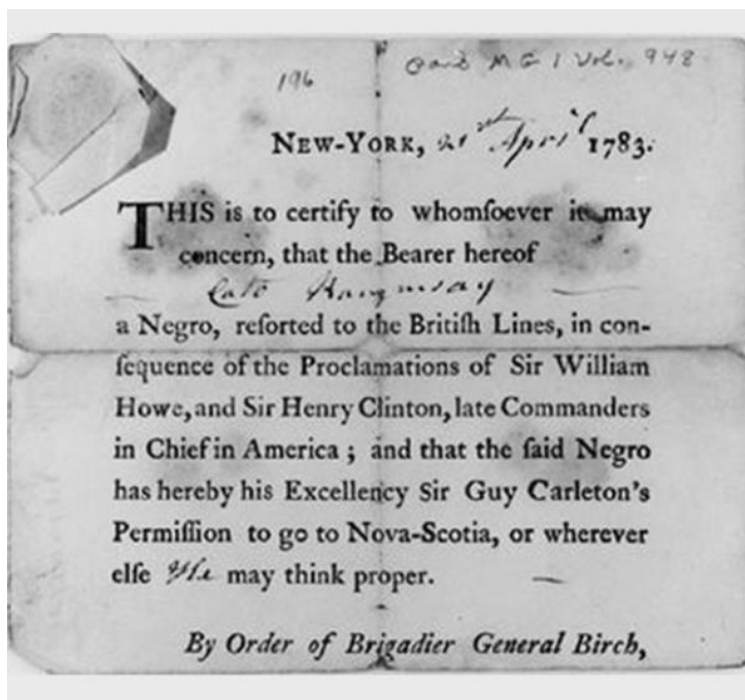 196
Pans M G 1 Vol. 948
NEW-YORK, 21st April 1783.
THIS is to certify to whomſoever it may
concern, that the Bearer hereof
Cato Rammsay
a Negro, reſorted to the Britiſh Lines, in con-
ſequence of the Proclamations of Sir William
Howe, and Sir Henry Clinton, late Commanders
in Chief in America ; and that the ſaid Negro
has hereby his Excellency Sir Guy Carleton's
Permiſſion to go to Nova-Scotia, or wherever
elſe He may think proper.
By Order of Brigadier General Birch,